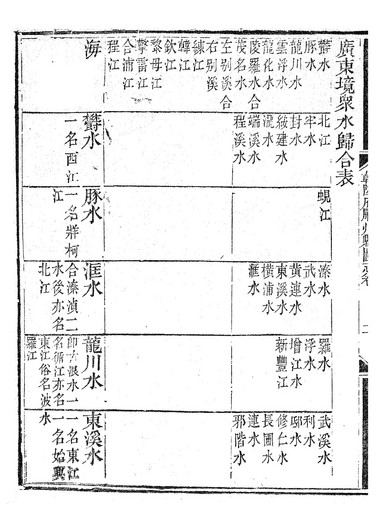 廣東境衆水歸合表
鬱水
豚水
龍川水
雲浮水
龍化水
陵羅水合
茂名水
左別溪合
右別溪
練江
韓江
欽江
黎母江
擎雷江
合浦江
程江
海
北江
牢水
封水
綏建水
瀧水
端溪水
程溪水
鬱水
一名西江
蜆江
豚水
一名牂柯
江
溱水
武水
黃連水
東溪水
橫浦水
滙水
洭水
合溱湞二
水後亦名
北江
羅水
浮水
增江水
新豐江
龍川水
即古浪水一
名循江亦名
東江俗名波
羅江
武溪水
利水
邸水
修仁水
長圃水
連水
邪階水
東溪水
一名東江
一名始興
水
二